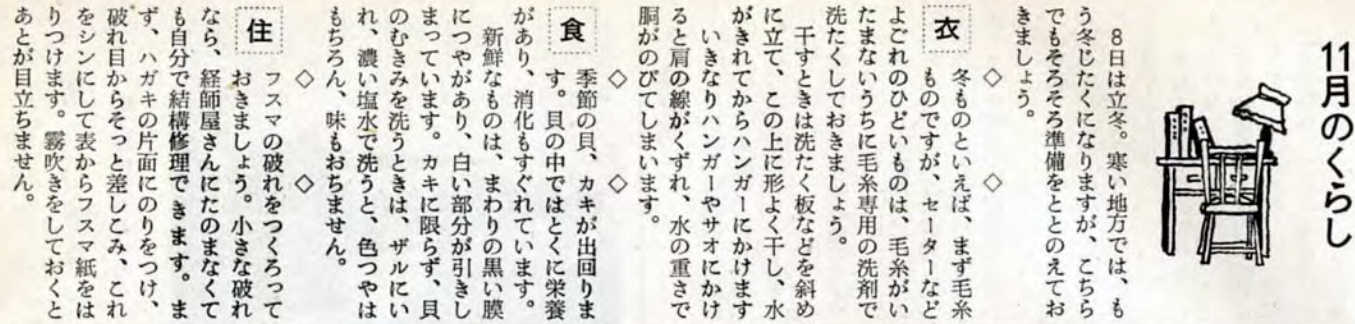 11月のくらし
8日は立冬。寒い地方では、も
う冬じたくになりますが、こちら
でもそろそろ準備をととのえてお
きましょう。
◇ ◇
衣
冬ものといえば、まず毛糸
ものですが、セーターなど
よごれのひどいものは、毛糸がい
たまないうちに毛糸専用の洗剤で
洗たくしておきましょう。
干すときは洗たく板などを斜め
に立て、この上に形よく干し、水
がきれてからハンガーにかけます
いきなりハンガーやサオにかけ
ると肩の線がくずれ、水の重さで
胴がのびてしまいます。
◇ ◇
食
季節の貝、カキが出回りま
す。貝の中ではとくに栄養
があり、消化もすぐれています。
新鮮なものは、まわりの黒い膜
につやがあり、白い部分が引きし
まっています。カキに限らず、貝
のむきみを洗うときは、ザルにい
れ、濃い塩水で洗うと、色つやは
もちろん、味もおちません。
◇ ◇
住
フスマの破れをつくろって
おきましょう。小さな破れ
なら、経師屋さんにたのまなくて
も自分で結構修理できます。ま
ず、ハガキの片面にのりをつけ、
破れ目からそっと差しこみ、これ
をシンにして表からフスマ紙をは
りつけます。霧吹きをしておくと
あとが目立ちません。